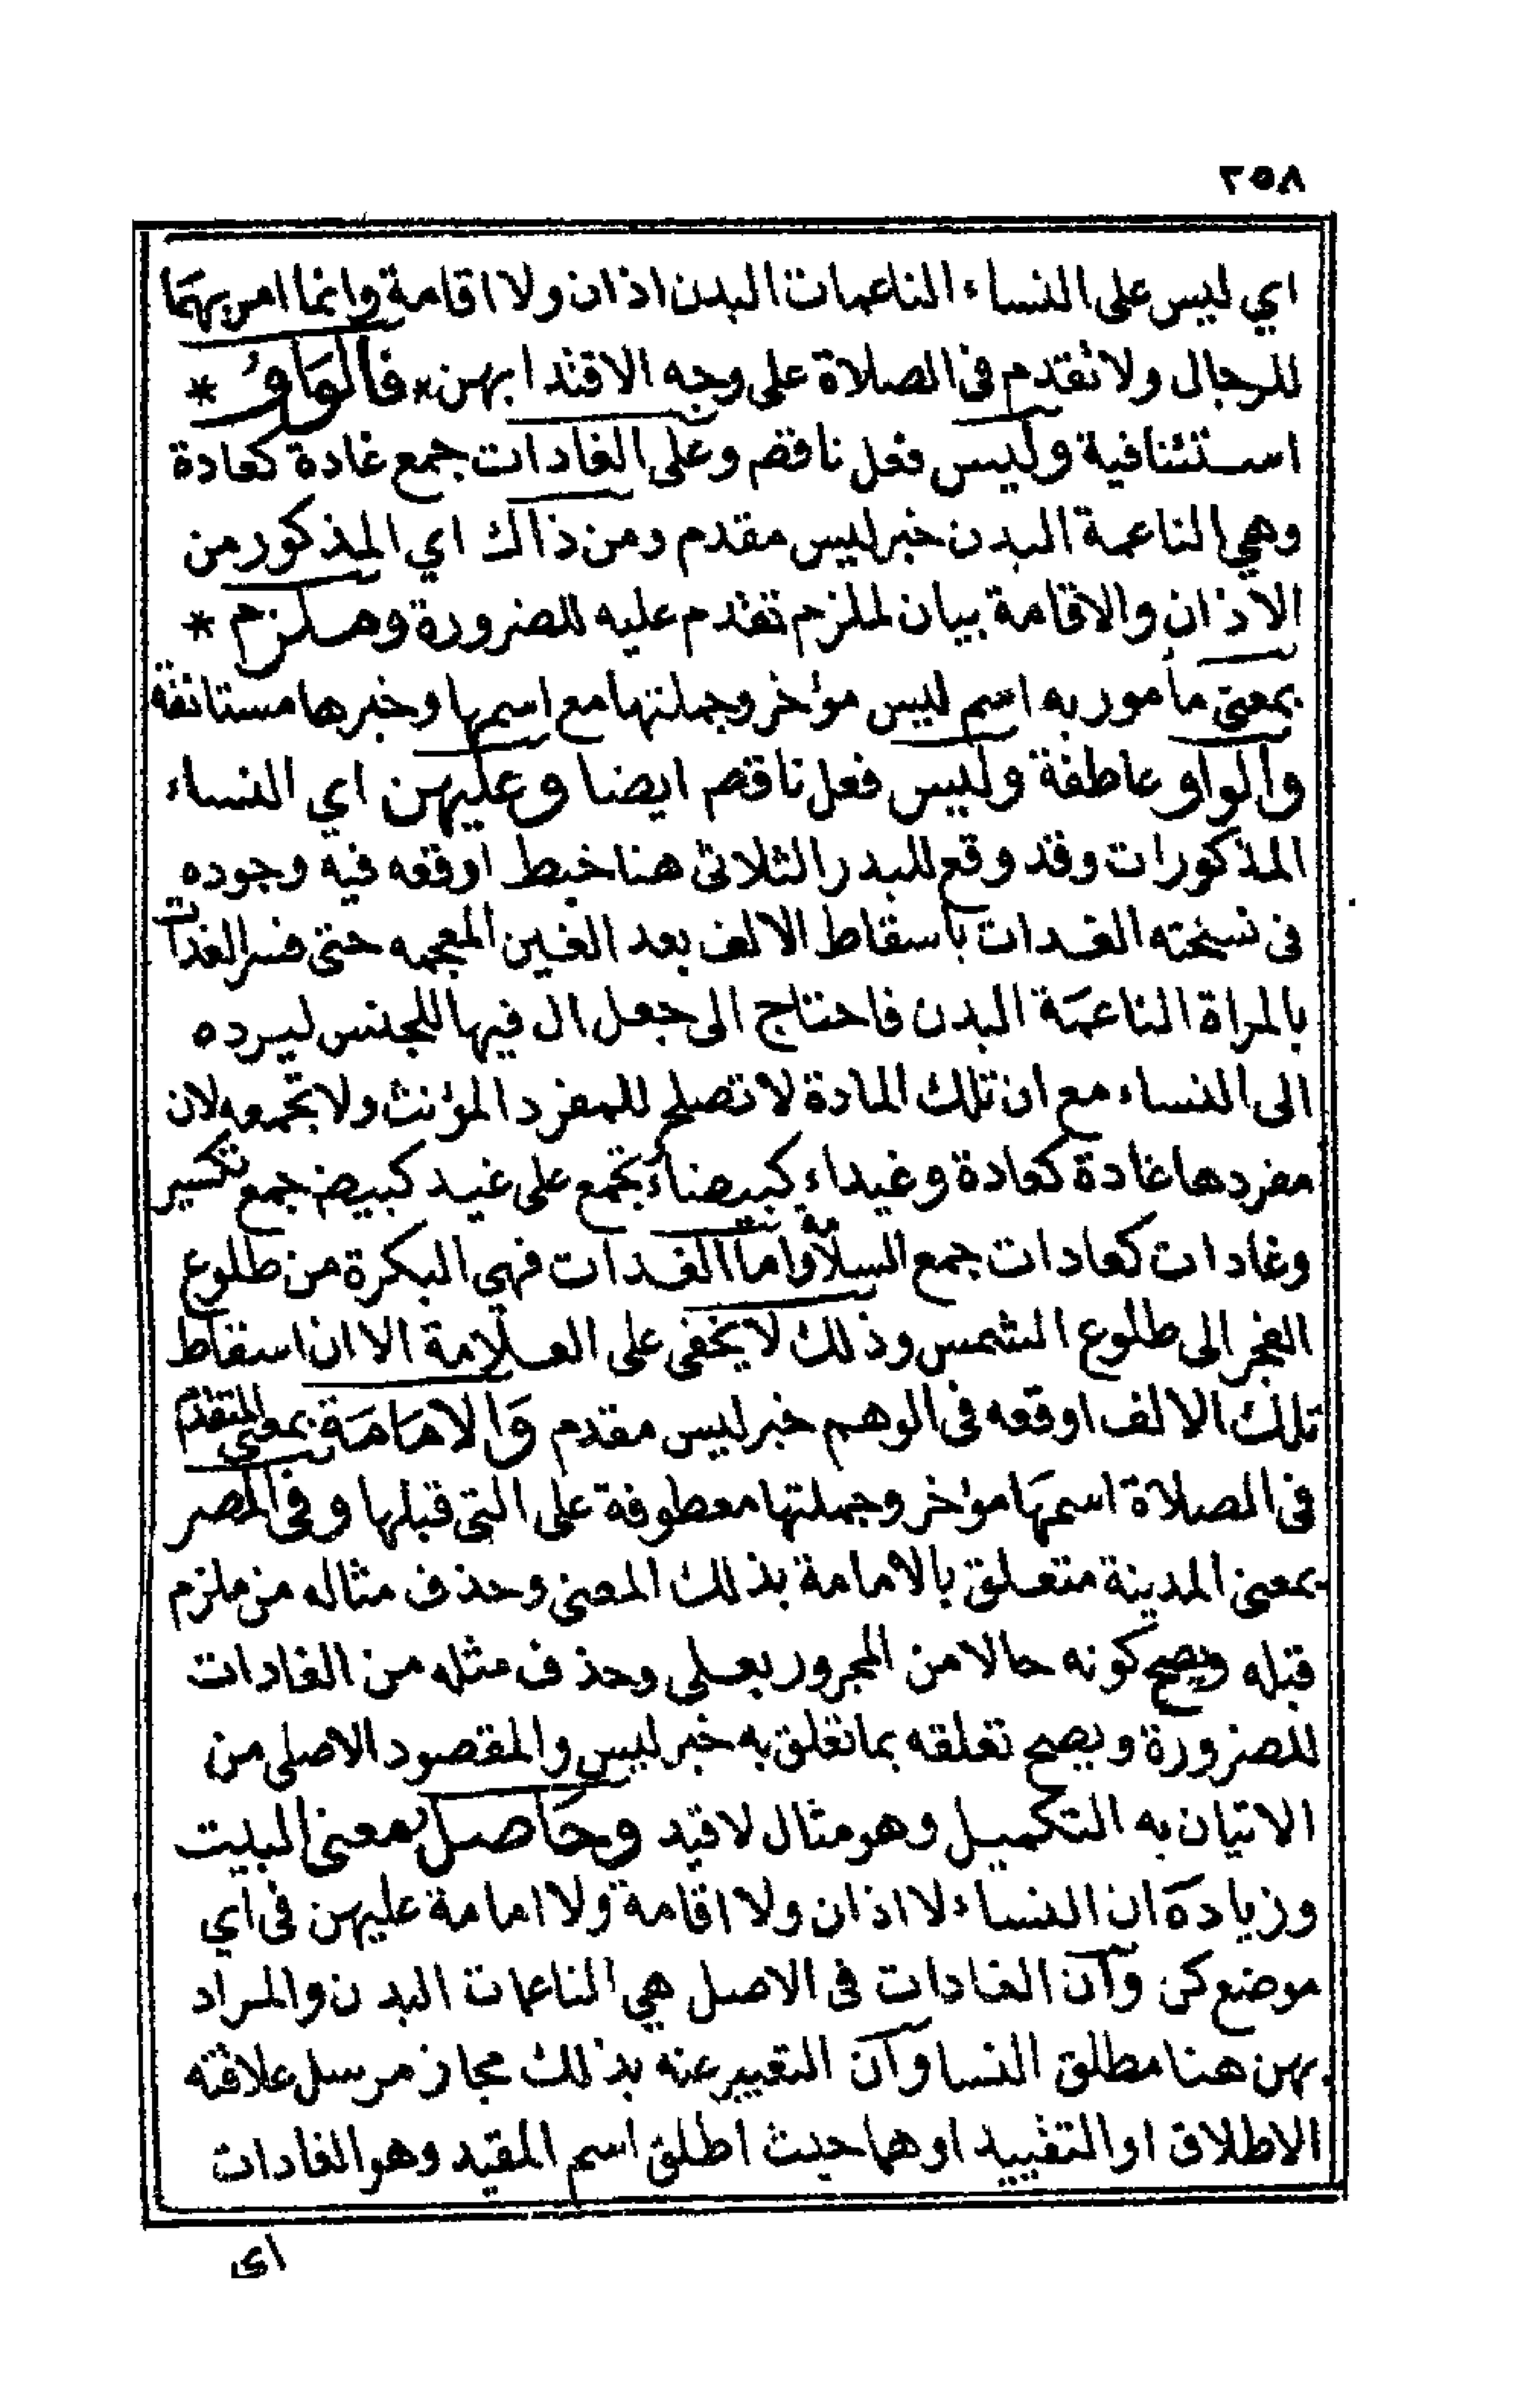 ٢٥٨
اي ليس على النساء الناعمات البدن اذان ولا اقامة وانما امر بهما
للرجال ولا تقدم في الصلاة على وجه الاقتدا بهن * فالواو *
استئنافية وليس فعل ناقص وعلى الغادات جمع غادة كعادة
وهي الناعمة البدن خبر ليس مقدم ومن ذاك اي المذكور من
الاذان والاقامة بيان لملزم تقدم عليه للضرورة وملزم *
بمعنى مأمور به اسم ليس مؤخر وجملتها مع اسمها وخبرها مستانفة
والواو عاطفة وليس فعل ناقص ايضا وعليهن اي النساء
المذكورات وقد وقع للبدر الثلاتى هنا خبط اوقعه فيه وجوده
فى نسخته الغدات باسقاط الالف بعد الغين المعجمه حتى فسر الغدات
بالمراة الناعمة البدن فاحتاج الى جعل ال فيها للجنس ليرده
الى النساء مع ان تلك المادة لا تصلح للمفرد المؤنث ولا لجمعه لان
مفردها غادة كعادة وغيداء كبيضاء تجمع على غيد كبيض جمع تكسير
وغادات كعادات جمع السلامة واما الغدات فهي البكرة من طلوع
الفجر الى طلوع الشمس وذلك لا يخفى على العلامة الا ان اسقاط
تلك الالف اوقعه فى الوهم خبر ليس مقدم والامامة بمعنى التقدم
فى الصلاة اسمها مؤخر وجملتها معطوفة على التى قبلها وفى المصر
بمعنى المدينة متعلق بالامامة بذلك المعنى وحذف مثاله من ملزم
قبله ويصح كونه حالا من المجرور بعلى وحذف مثله من الغادات
للضرورة ويصح تعلقه بما تعلق به خبر ليس والمقصود الاصلى من
الاتيان به التكميل وهو مثال لا قيد وحاصل بمعنى البيت
وزيادة ان النساء لا اذان ولا اقامة ولا امامة عليهن فى اي
موضع كن وان الغادات فى الاصل هي الناعمات البدن والمراد
بهن هنا مطلق النسا وان التعبير عنه بذلك مجاز مرسل علاقته
الاطلاق او التقييد او هما حيث اطلق اسم المقيد وهو الغادات
اى